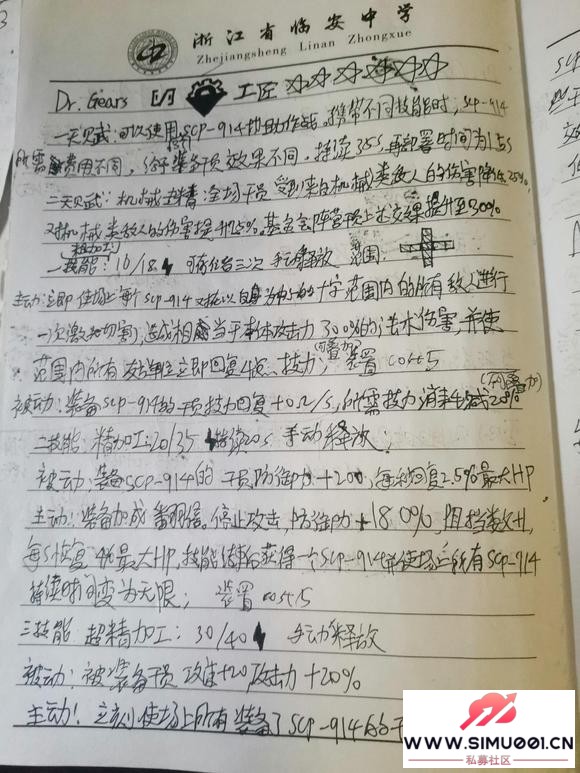 浙江省临安中学
Zhejiangsheng Linan Zhongxue
Dr. Gears 工匠
一天赋：可以使用SCP-914协助作战。携带不同技能时，SCP-914
所需费用不同，给予装备干员效果不同。持续35s，再部署时间为15s
二天赋：机械 全场干员受到来自机械类敌人的伤害降低25%，
对机械类敌人的伤害提升25%。基金会阵营干员上述效果提升至30%
粗加工
一技能：10/18 可 三次 手动释放 范围：
主动：立即使场上每个SCP-914对以自身为中心的十字范围内的所有敌人进行
一次激光切割，造成相当于本体攻击力300%的法术伤害，并使
范围内所有友方单位立即回复4点技力，装置cost5
(可叠加)
(不可叠加)
被动：装备SCP-914的干员技力回复+0.2/s，所需技力消耗减20%
二技能：精加工：20/35 持续20s 手动释放
被动：装备SCP-914的干员防御力+20%，每秒回复2.5%最大HP
主动：装备加成翻倍。停止攻击，防御力+180%，阻挡数+1，
每s恢复 %最大HP，技能 获得一个SCP-914并使场上所有SCP-914
持续时间变为无限；装置cost15
三技能 超精加工：30/40 手动释放
被动：被装备干员 攻速+20 攻击力+20%
主动！立刻使场上所有装备了SCP-914的干
WWW.SIMU001.CN
私募社区